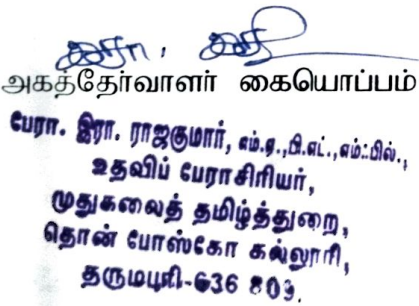 அகத்தேர்வாளர் கையொப்பம்
பேரா. இரா. ராஜகுமார், எம்.ஏ.,பி.எட்.,எம்ஃபில்.,
உதவிப் பேராசிரியர்,
முதுகலைத் தமிழ்த்துறை,
தொன் போஸ்கோ கல்லூரி,
தருமபுரி-636 809.